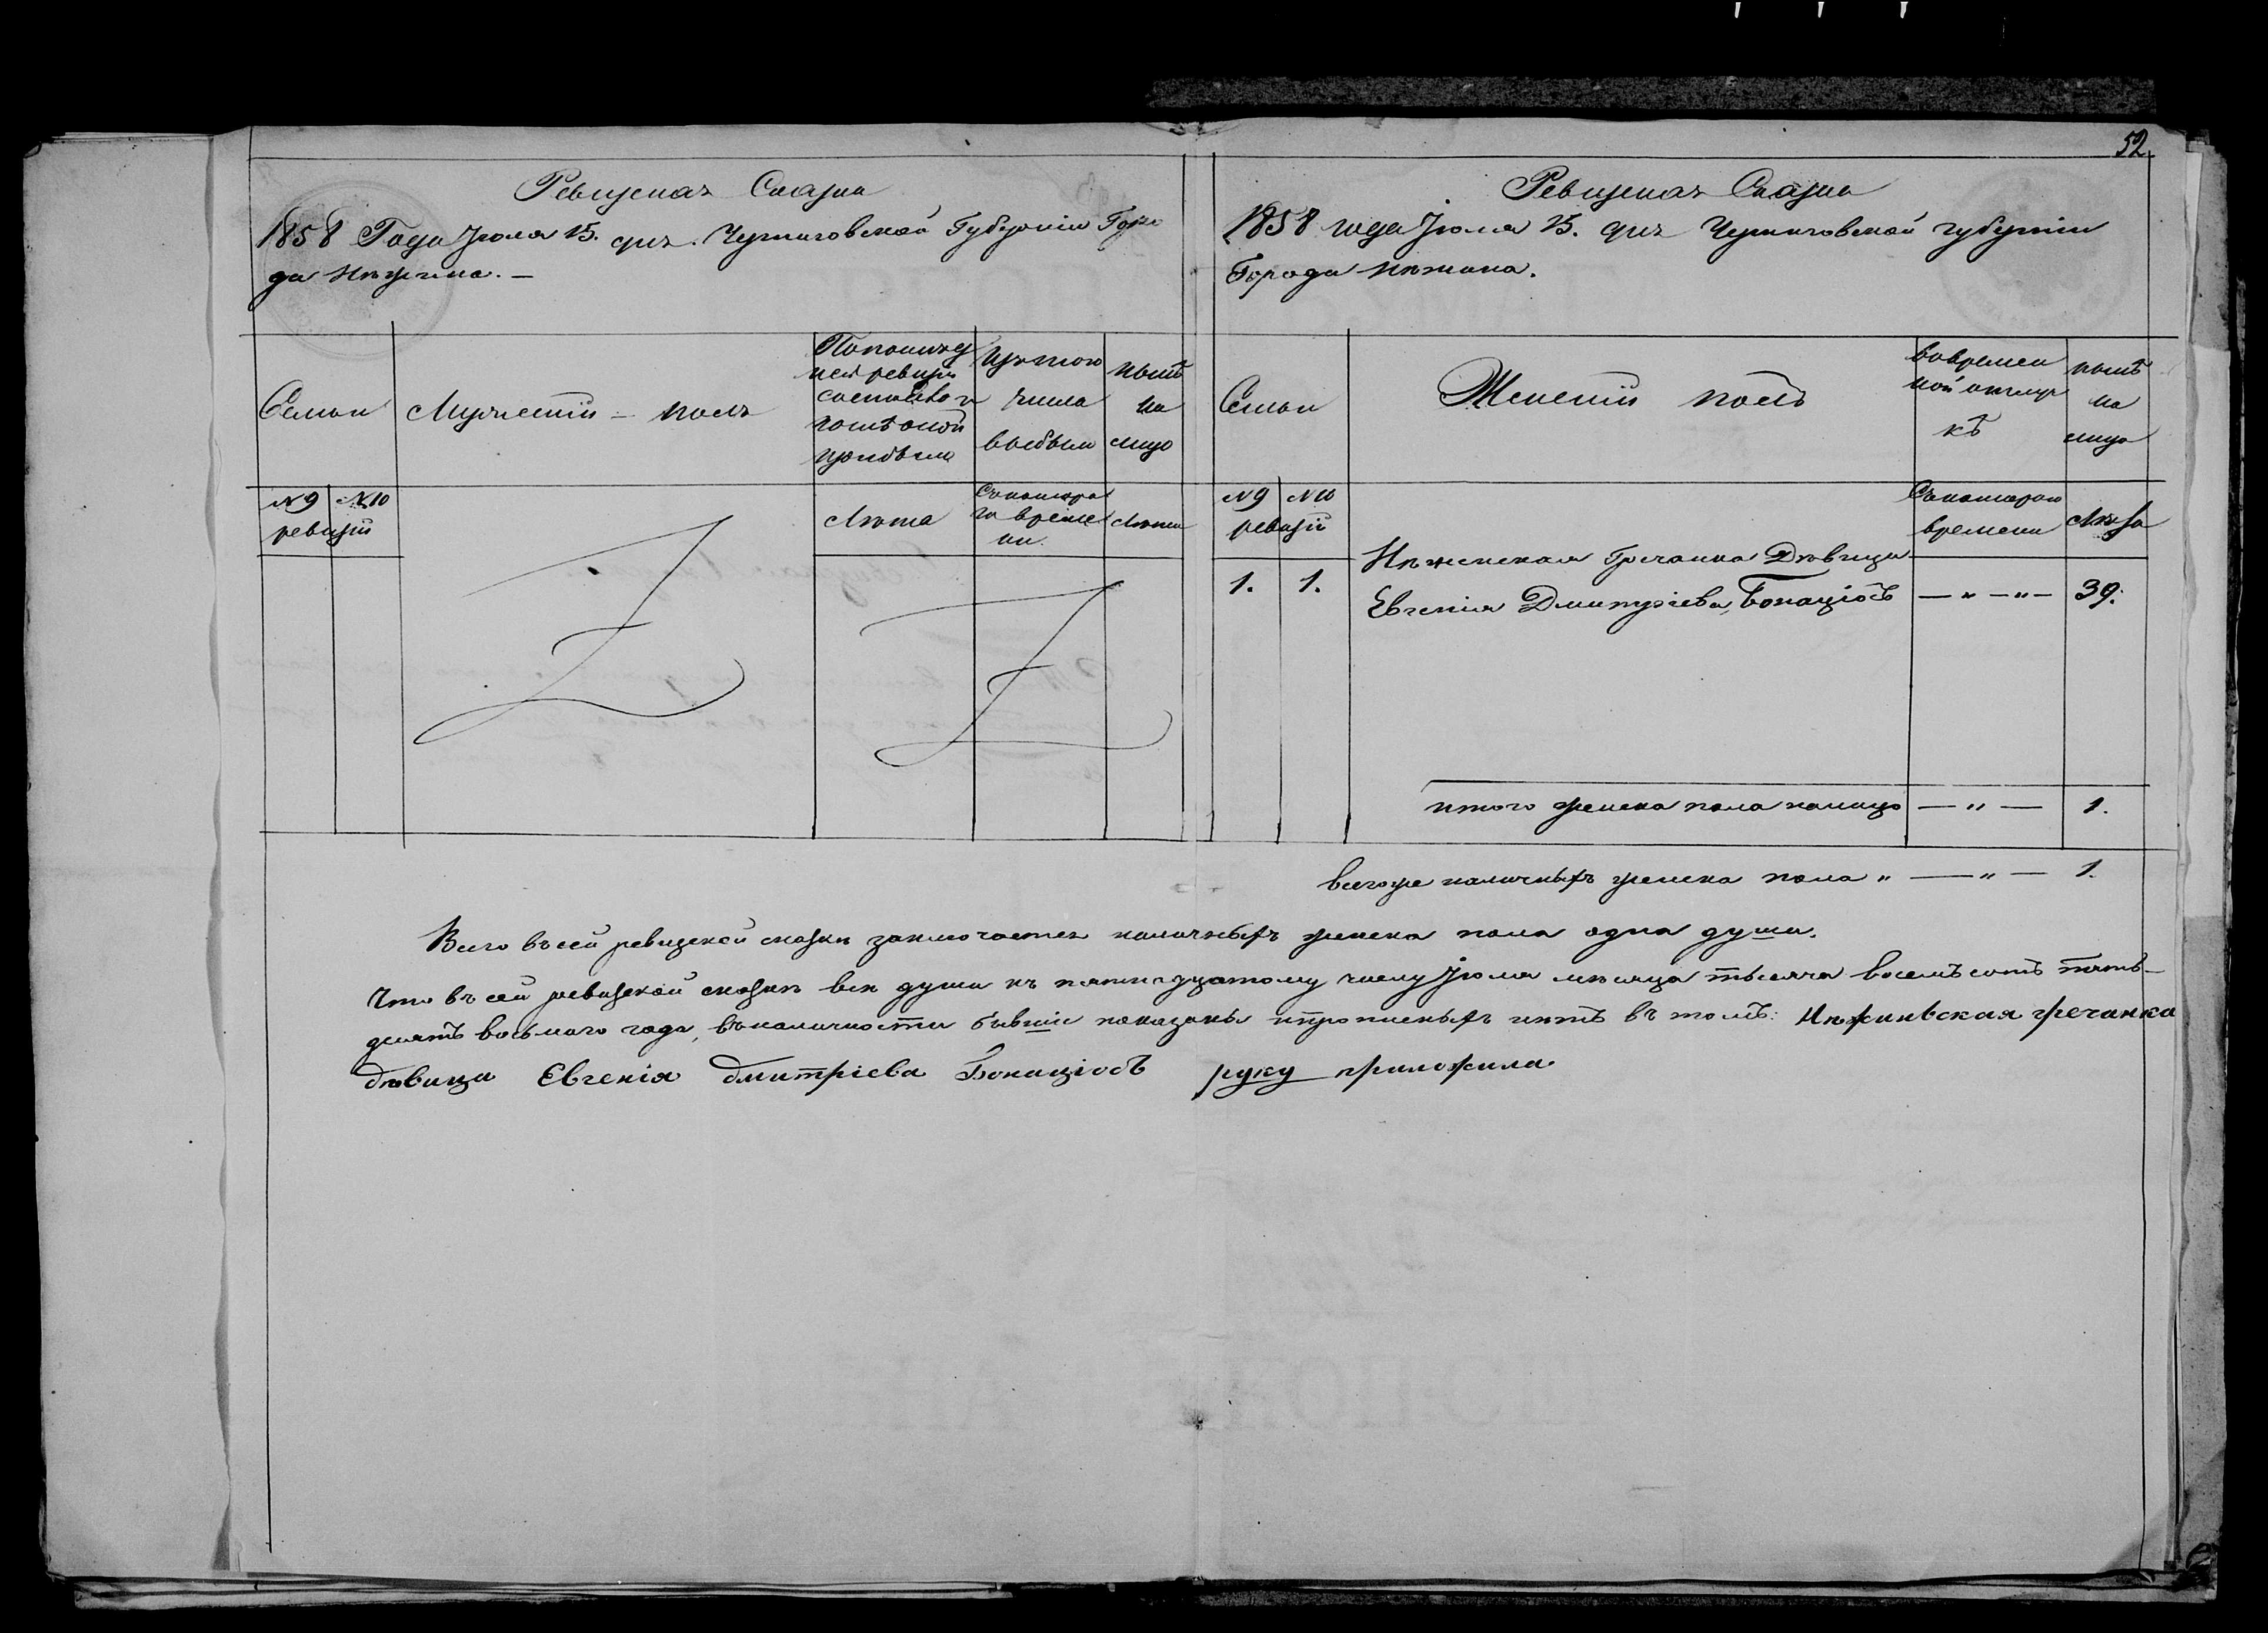 52
Ревизская Сказка
1858 Года Іюля 15. дня. Черниговской Губерніи Горо
да Нѣжина. —
Семьи
Мужескій – полъ
По послед
ней ревизіи
состояло и
послѣ оной
прибыло
Изъ того
числа
выбыло
нынѣ
на
лицо
№ 9 № 10
ревизіи
Лѣта
Съ котора
го време
ни.
Лѣта
Ревизская Сказка
1858 года Іюля 15. дня Черниговской губерніи
Города Нѣжина.
Семьи
Женскій полъ
Во времен
ной отлуч
кѣ
нынѣ
на
лицо
№ 9 № 10
ревизіи
Съ котораго
времени
Лѣта
Нѣженская Гречанка Дѣвица
1. 1. Евгенія Дмитріева Бонаціосъ — " — " — 39.
итого женска пола налицо — " — 1.
Всего же наличныхъ женска пола " — " — 1.
Всего въ сей ревизской сказкѣ заключается наличныхъ женска пола одна душа.
Что въ сей ревизской сказкѣ всѣ души къ пятнадцатому числу Іюля мѣсяца тысяча восемъ сотъ пять-
десятъ восьмаго года, въ наличности бывшіе показаны и прописныхъ нѣтъ въ томъ: Нѣжинвская гречанка
дѣвица Евгенія дмитріева Бонаціосъ руку приложила